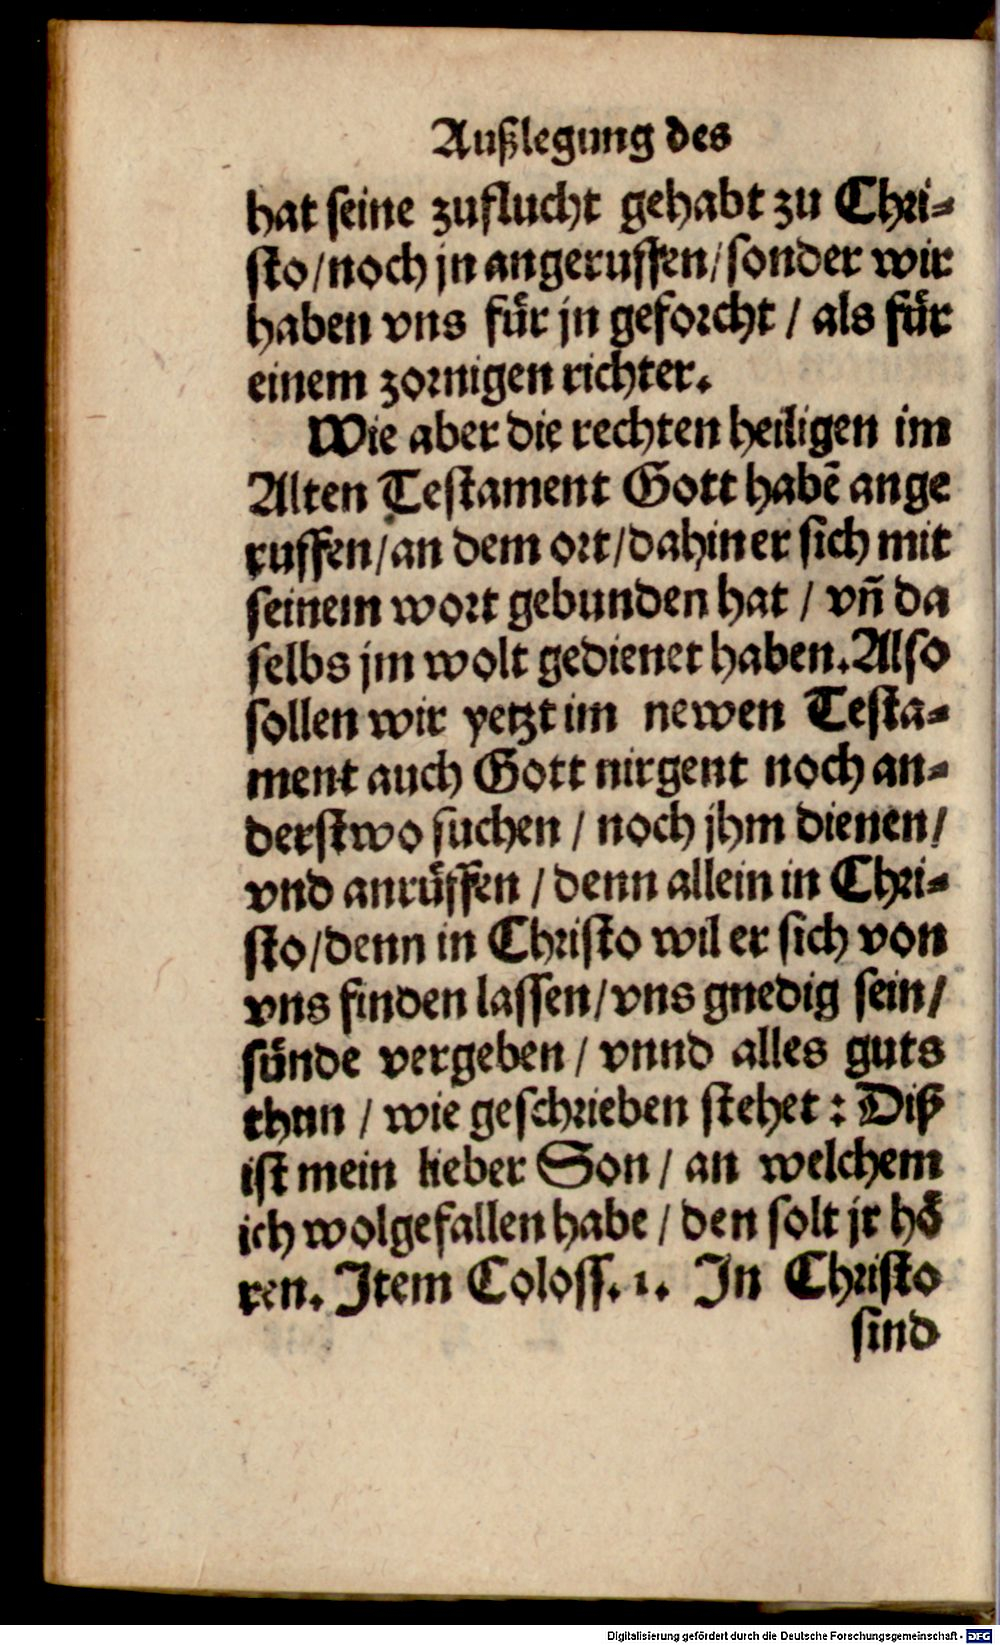 Außlegung des
hat seine zuflucht gehabt zu Chri⸗
sto/noch jn angeruffen/sonder wir
haben vns für jn geforcht / als für
einem zornigen richter.
Wie aber die rechten heiligen im
Alten Testament Gott habē ange
ruffen/an dem ort/dahin er sich mit
seinem wort gebunden hat / vñ da
selbs jm wolt gedienet haben. Also
sollen wir yetzt im newen Testa⸗
ment auch Gott nirgent noch an⸗
derstwo suchen / noch jhm dienen/
vnd anrüffen / denn allein in Chri⸗
sto/denn in Christo wil er sich von
vns finden lassen/vns gnedig sein/
sünde vergeben / vnnd alles guts
thun / wie geschrieben stehet : Diß
ist mein lieber Son / an welchem
ich wolgefallen habe / den solt jr hö
ren. Item Coloss. 1. In Christo
sind
Digitalisierung gefördert durch die Deutsche Forschungsgemeinschaft - DFG